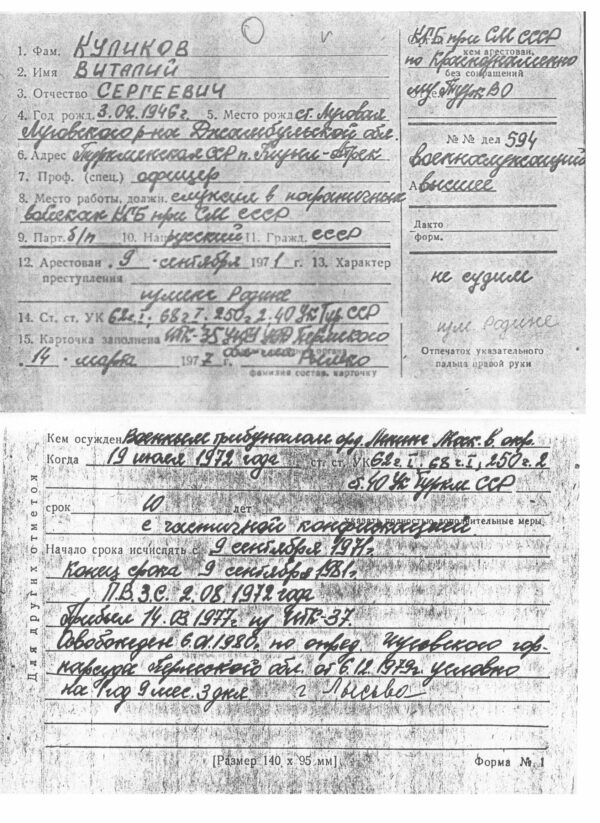 1. Фам. КУЛИКОВ
2. Имя ВИТАЛИЙ
3. Отчество СЕРГЕЕВИЧ
4. Год рожд. 3.02.1946г. 5. Место рожд. ст. Луговая
Луговского р-на Джамбульской обл.
6. Адрес Туркменская ССР п.
7. Проф. (спец.) офицер
8. Место работы, должн. служил в пограничных
войсках КГБ при СМ СССР
9. Парт. б/п 10. Нац. русский 11. Гражд. СССР
12. Арестован „9 " сентября 1971 г. 13. Характер
преступления
измена Родине
14. Ст. ст. УК 62 ч. I, 68 ч I. 250 ч 2. 40 УК Тур. ССР
15. Карточка заполнена ИТК-35 Пермского
„14 " марта 1977 г.
фамилия состав. карточку
КГБ при СМ СССР
кем арестован,
по Краснознаменно
без сокращений
му ТуркВО
№ № дел 594
военнослужащий
высшее
Дакто
форм.
не судим
изм. Родине
Отпечаток указательного
пальца правой руки
Для других отметок
Кем осужден Военным трибуналом орд. Ленина Моск. в. окр.
Когда 19 июля 1972 года ст. ст. УК 62 ч. I. 68 ч. I, 250 ч. 2
40 УК Туркм ССР
срок 10 лет
с частичной конфискацией
указать полностью дополнительные меры
Начало срока исчислять с 9 сентября 1971г.
Конец срока 9 сентября 1981г.
П.В.З.С. 2.08.1972 года
Прибыл 14.03.1977г. из ИТК-37.
Освобожден 6.01.1980г. по опред. Чусовского гор-
нарсуда Пермской обл. от 6.12.1979г. условно
на 1 год 9 мес. 3 дня г Лысьва
[Размер 140 х 95 мм]
Форма № 1